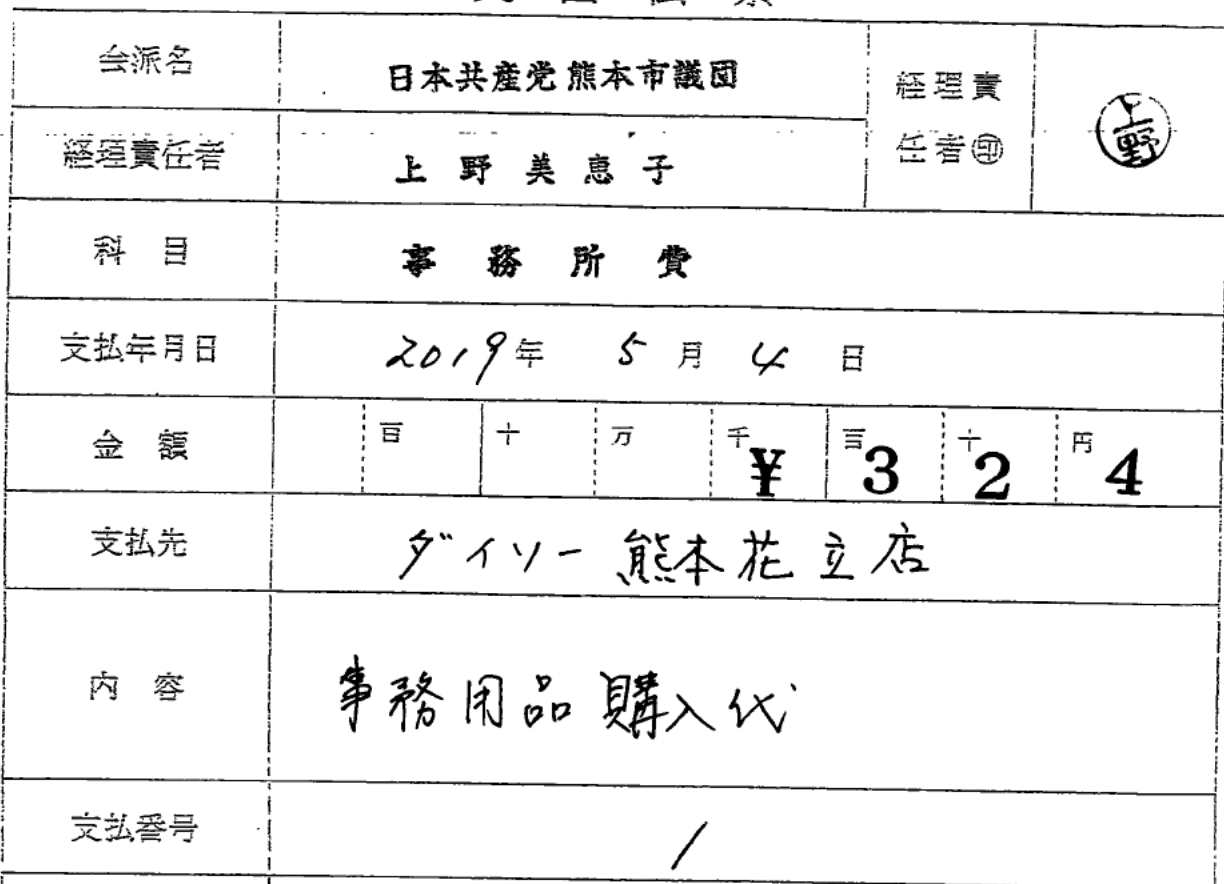 会派名 日本共産党熊本市議団 経理責任者㊞ 上野
経理責任者 上野美恵子
科目 事務所費
支払年月日 2019年 5月 4日
金額 百 十 万 千¥ 百3 十2 円4
支払先 ダイソー熊本花立店
内容 事務用品購入代
支払番号 1